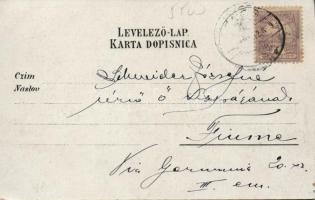 LEVELEZŐ-LAP
KARTA DOPISNICA
Czim
Naslov
Schneider Józsefné
úrnő Ő Nagyságának
Fiume
Via Germania 20. sz.
III. em.